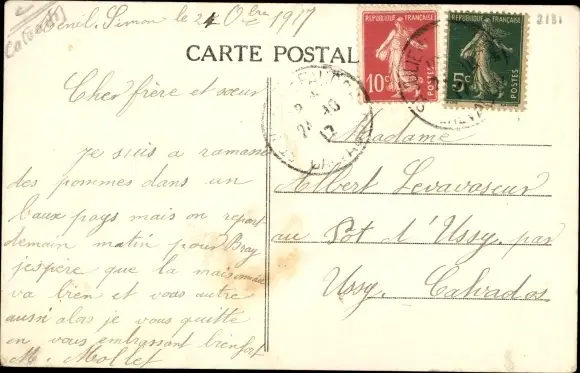 Menil, Simon le 24 Obre 1917
Calvados
3131
CARTE POSTALE
REPUBLIQUE FRANÇAISE
10c
POSTES
REPUBLIQUE FRANÇAISE
5c
POSTES
24 10
17
CALVADOS
Cher frère et sœur
Je suis a ramassé
des pommes dans un
baux pays mais on repart
demain matin pour Bray
j'espère que la maisonnée
va bien et vous autre
aussi alas je vous quitte
en vous embrassant bienfort
M. Mollet
Madame
Albert Levavasseur
au Pot d'Ussy, par
Ussy, Calvados